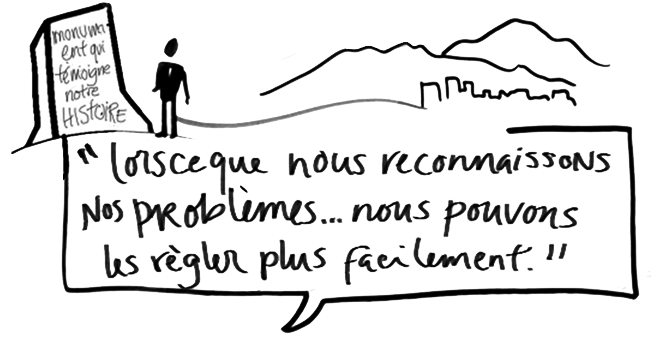 monuma-
ent qui
témoigne
notre
HISTOIRE
"lorsceque nous reconnaissons
nos problèmes... nous pouvons
les règler plus facilement."